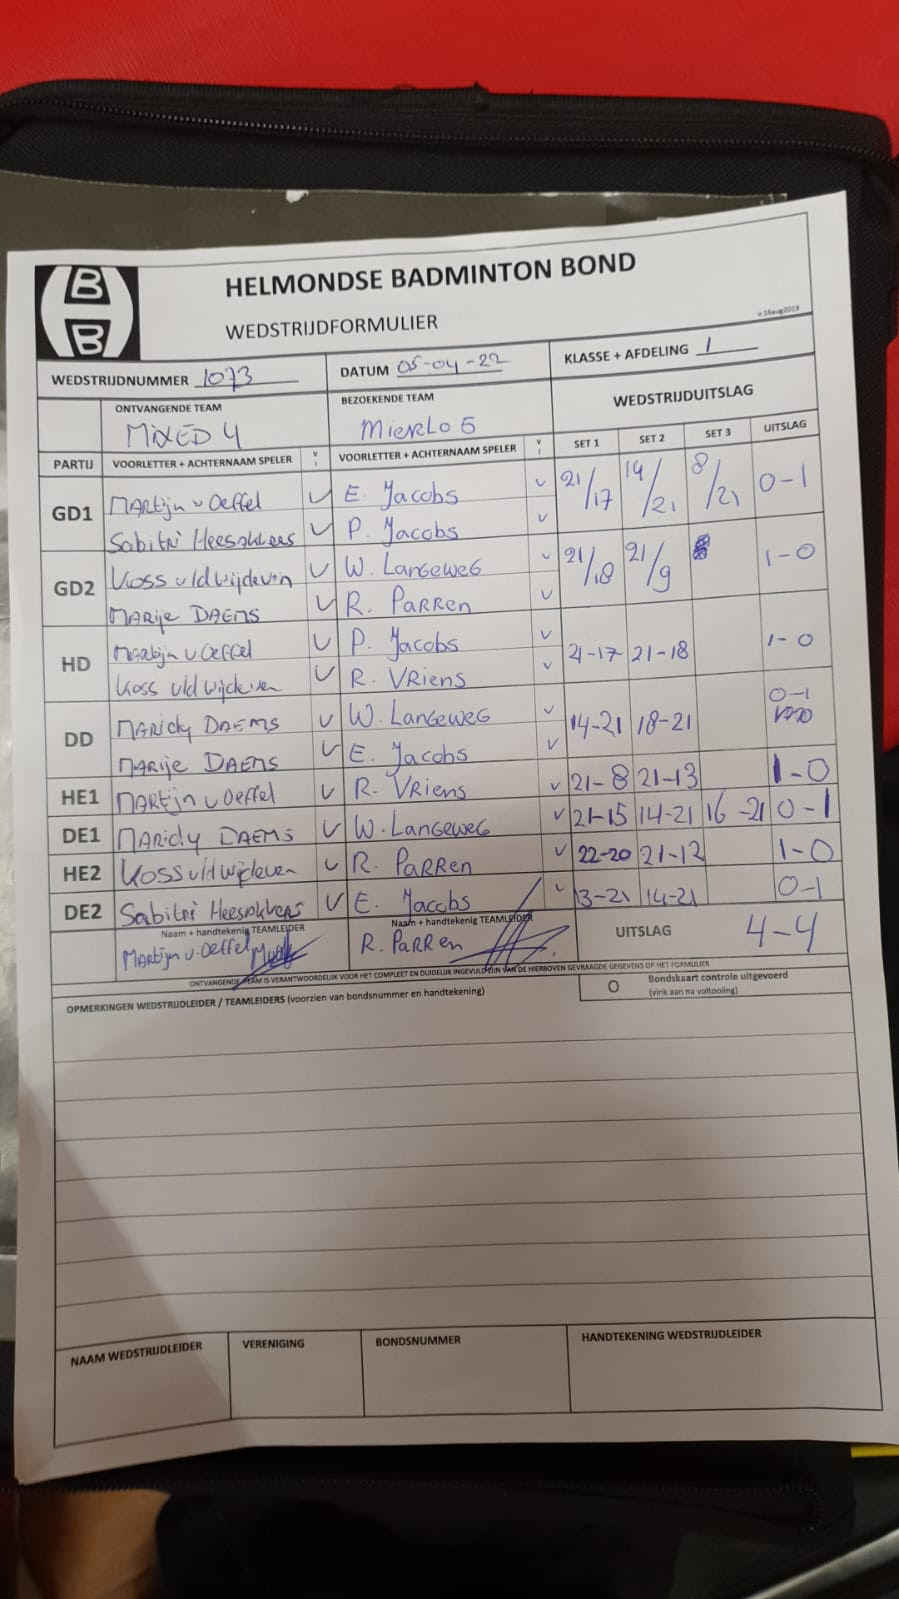 B
B
HELMONDSE BADMINTON BOND
WEDSTRIJDFORMULIER
v.16aug2019
WEDSTRIJDNUMMER 1073 DATUM 05-04-22 KLASSE + AFDELING 1
ONTVANGENDE TEAM BEZOEKENDE TEAM WEDSTRIJDUITSLAG
MIXED 4 MIERLO 5
PARTIJ VOORLETTER + ACHTERNAAM SPELER V VOORLETTER + ACHTERNAAM SPELER V SET 1 SET 2 SET 3 UITSLAG
GD1 Martijn v Oeffel V E. Jacobs V 21/17 14/21 8/21 0-1
Sabitri Heesakkers V P. Jacobs V
GD2 Koss v/d Wijdeven V W. Langeweg V 21/18 21/9 1-0
Marije DAEMS V R. Parren V
HD Martijn v Oeffel V P. Jacobs V 21-17 21-18 1-0
Koss v/d Wijdeven V R. Vriens V
DD Maricky DAEMS V W. Langeweg V 14-21 18-21 0-1
Marije DAEMS V E. Jacobs V
HE1 Martijn v Oeffel V R. Vriens V 21-8 21-13 1-0
DE1 Maricky DAEMS V W. Langeweg V 21-15 14-21 16-21 0-1
HE2 Koss v/d Wijdeven V R. Parren V 22-20 21-12 1-0
DE2 Sabitri Heesakkers V E. Jacobs V 13-21 14-21 0-1
Naam + handtekenig TEAMLEIDER Naam + handtekenig TEAMLEIDER UITSLAG 4-4
Martijn v Oeffel R. Parren
ONTVANGENDE TEAM IS VERANTWOORDELIJK VOOR HET COMPLEET EN DUIDELIJK INGEVULD ZIJN VAN DE HIERBOVEN GEVRAAGDE GEGEVENS OP HET FORMULIER
OPMERKINGEN WEDSTRIJDLEIDER / TEAMLEIDERS (voorzien van bondsnummer en handtekening) O Bondskaart controle uitgevoerd
(vink aan na voltooiing)
NAAM WEDSTRIJDLEIDER VERENIGING BONDSNUMMER HANDTEKENING WEDSTRIJDLEIDER